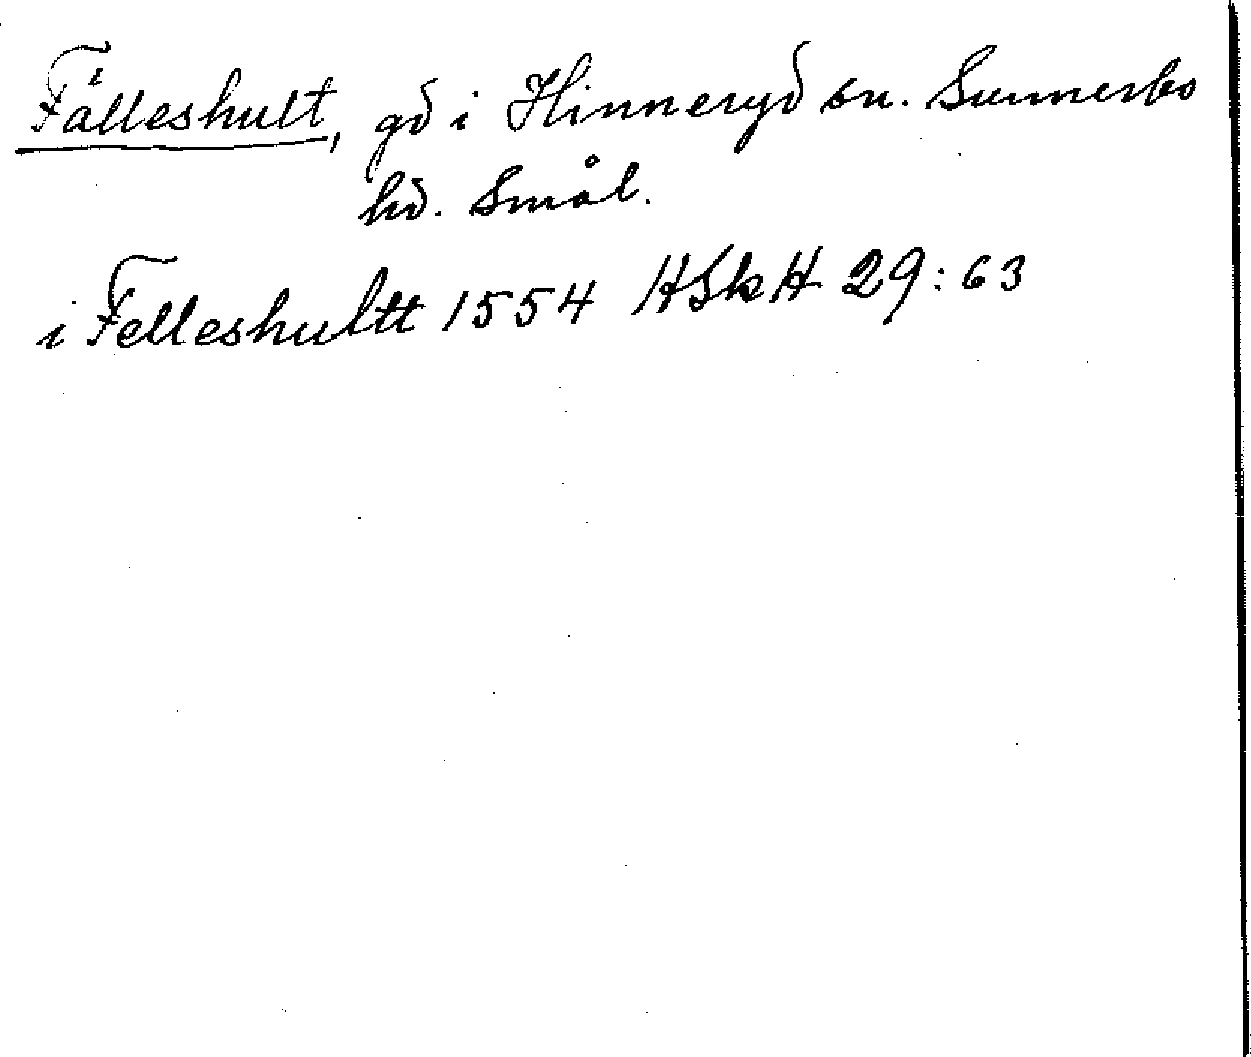 Fälleshult, gd i Hinneryd sn. Sunnerbo
hd. Smål.
i Felleshultt 1554 HSkH 29:63